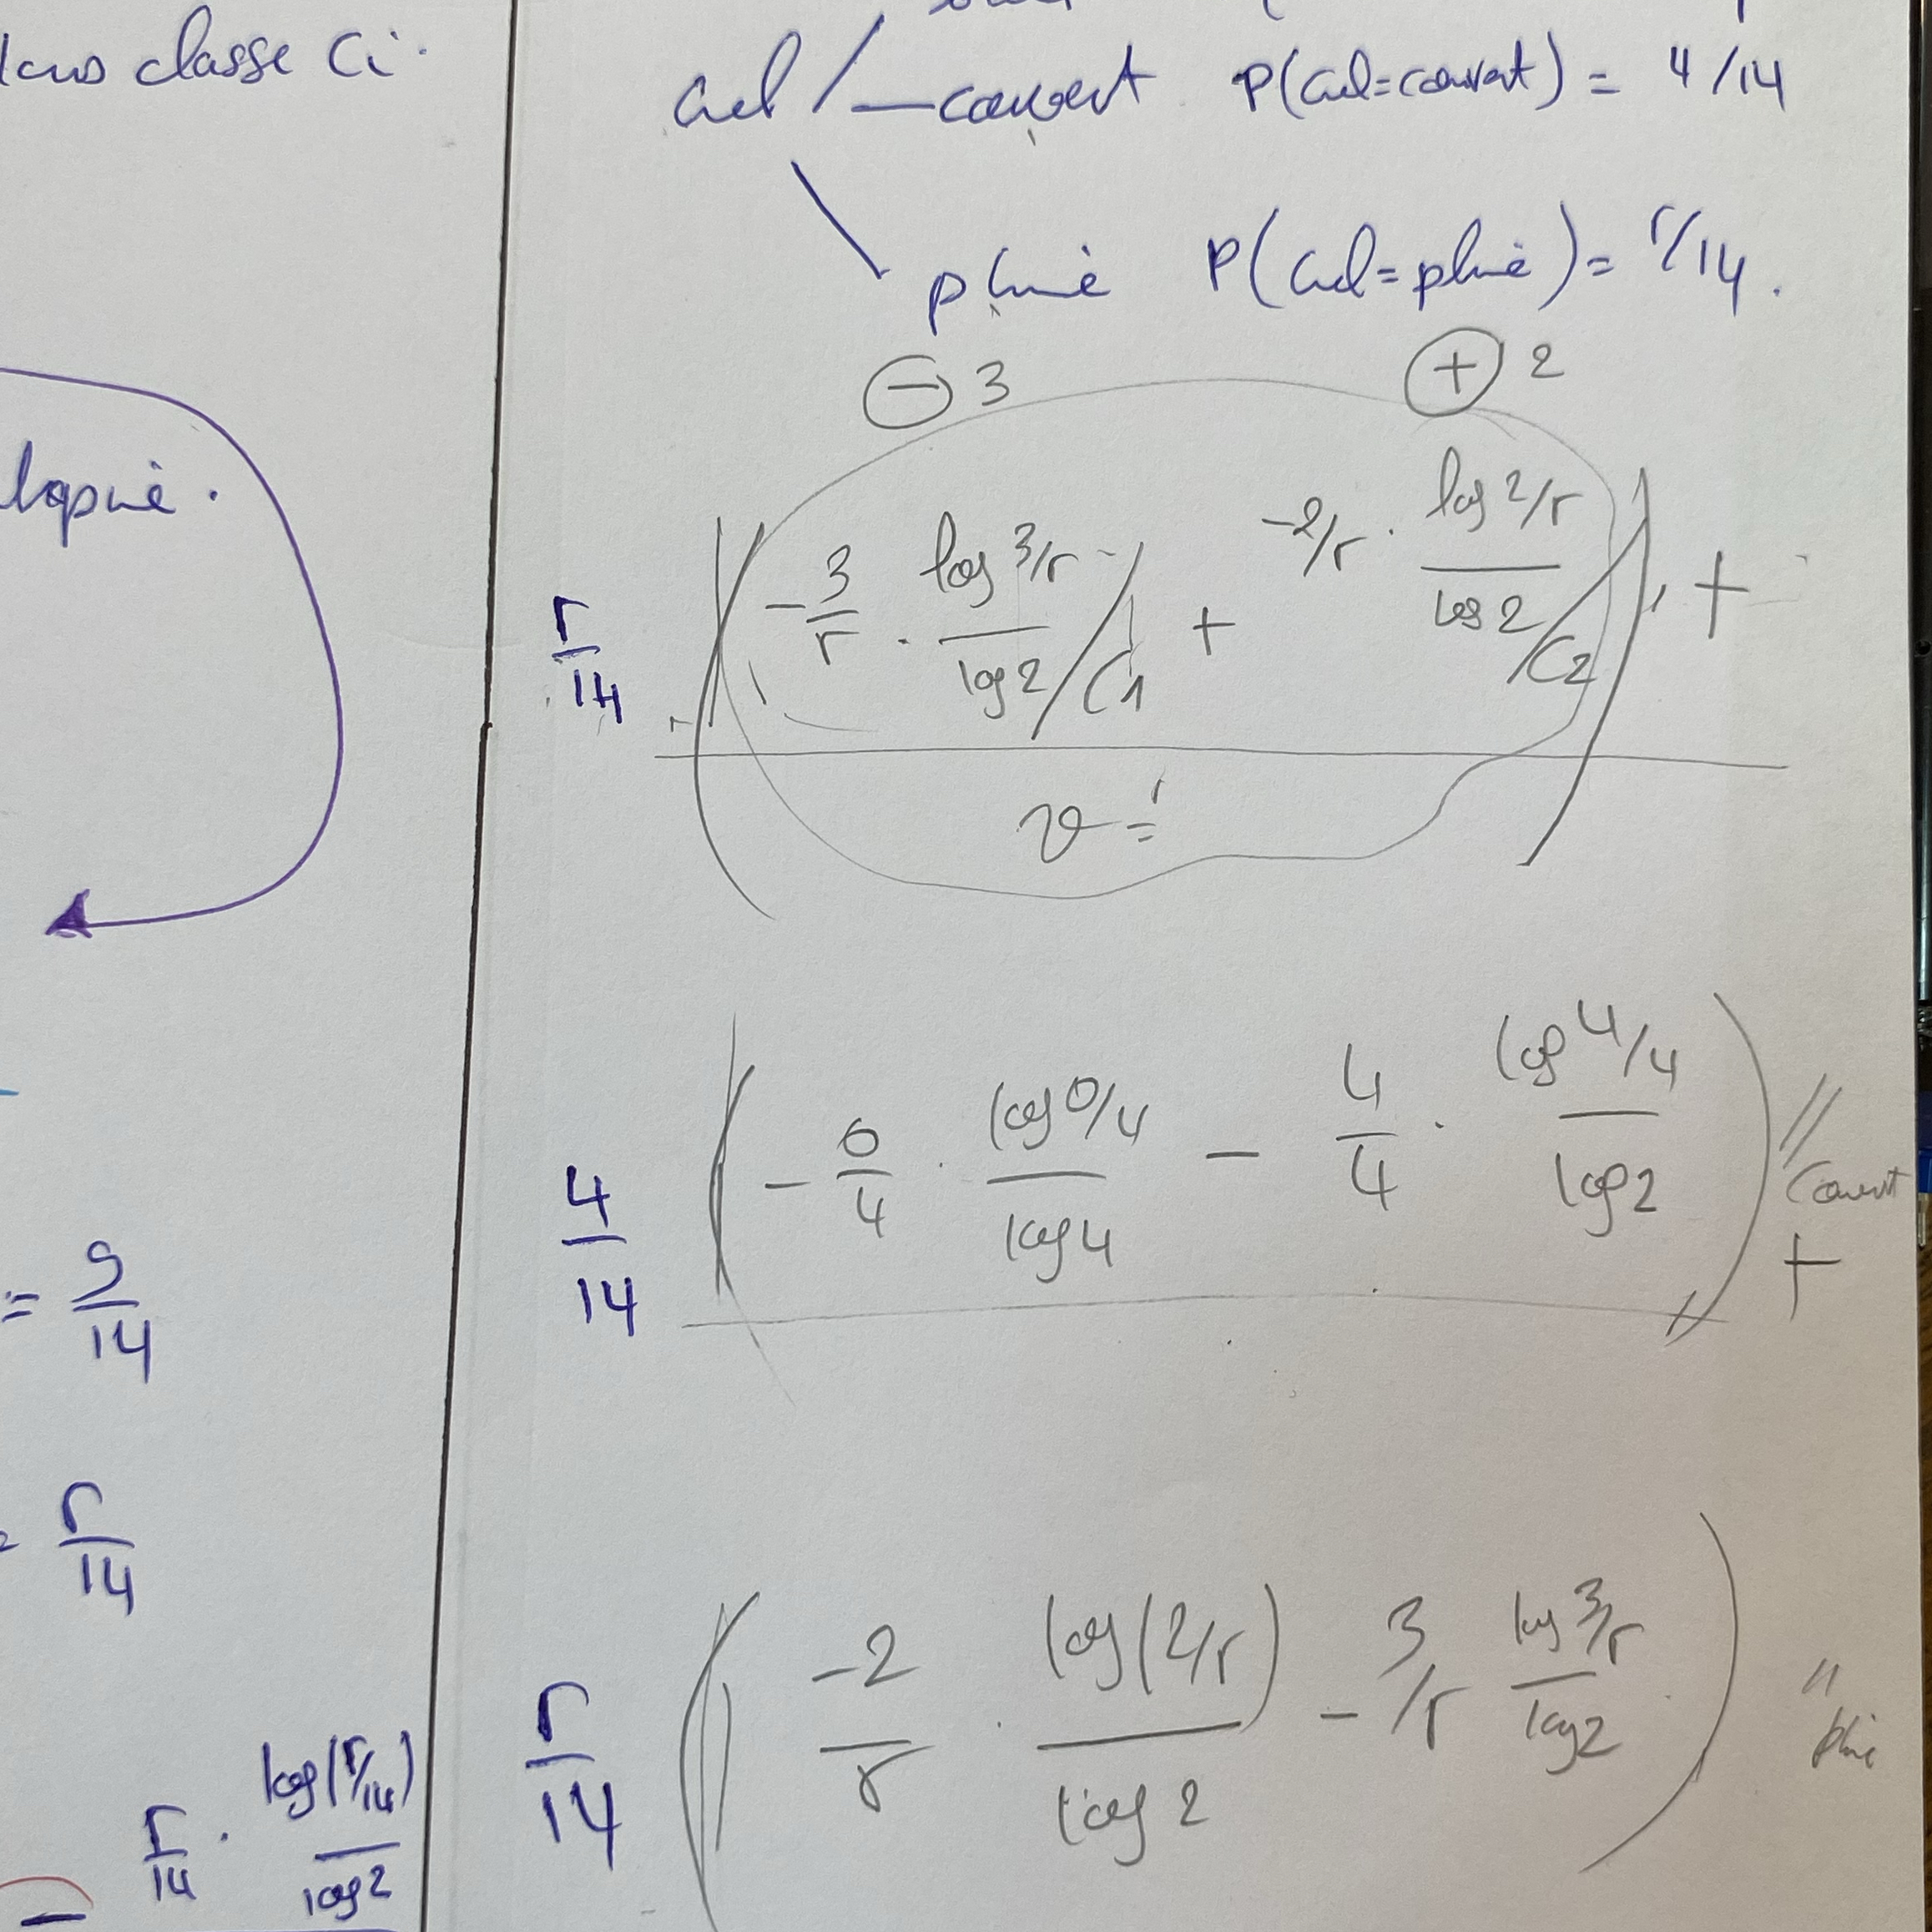 classe Ci.
lopie.
= 9/14
= 5/14
5/14 . log(5/14)/log2
ciel / — couvert P(ciel=couvert) = 4/14
pluie P(ciel=pluie) = 5/14.
⊖ 3 ⊕ 2
5/14 ( -3/5 . log 3/5 / log2 / C1 + -2/5 . log 2/5 / log2 / C2 ) +
4/14 ( - 0/4 . log 0/4 / log4 - 4/4 . log 4/4 / log2 ) // couvert +
5/14 ( -2/5 . log(2/5) / log2 - 3/5 log 3/5 / log2 ) " pluie